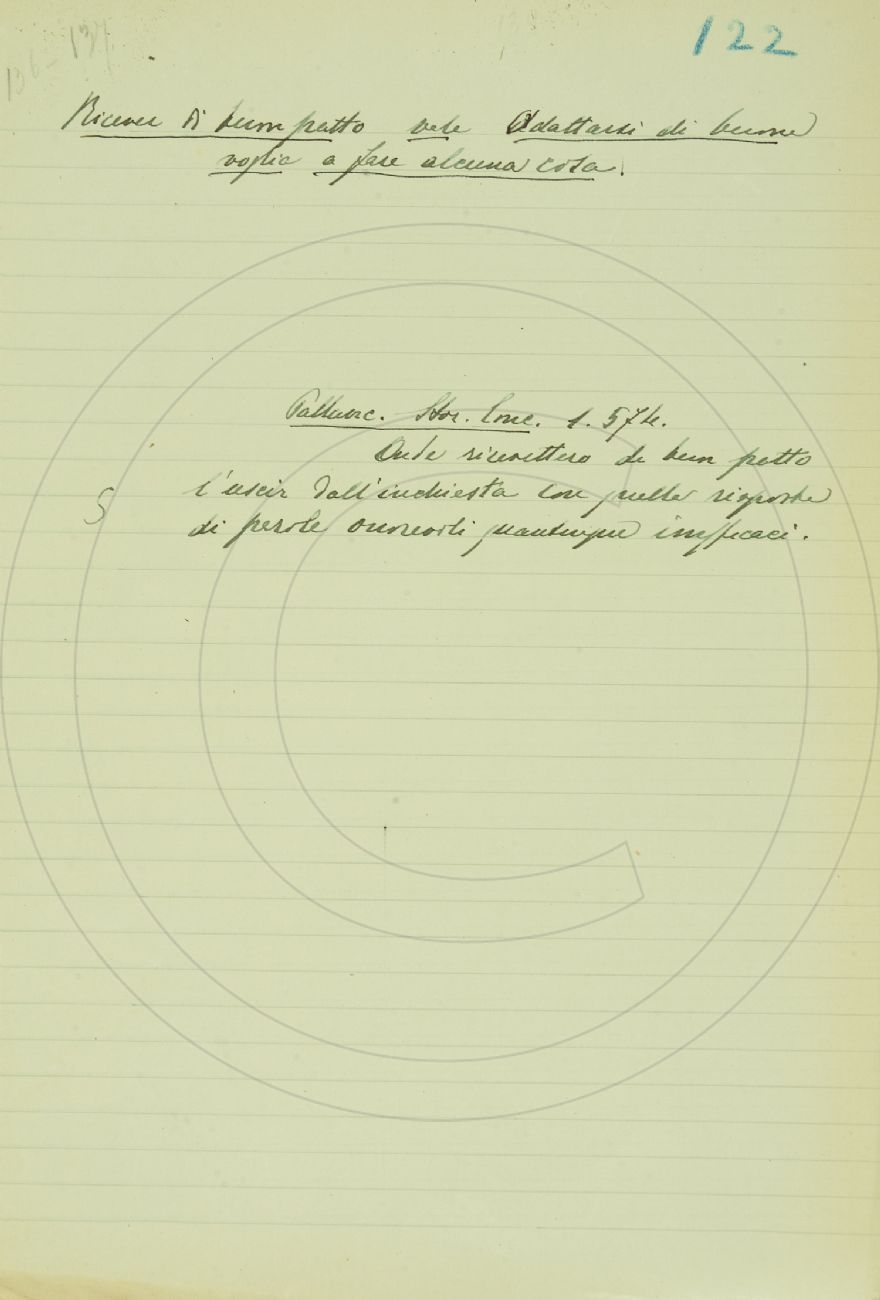 136-137
122
Ricever di buon patto vale Adattarsi di buona
voglia a fare alcuna cosa.
Pallavic. Stor. Conc. 1. 574.
Onde ricevettero di buon patto
l'uscir dall'inchiesta con quelle risposte
S
di parole onorevoli quantunque inefficaci.